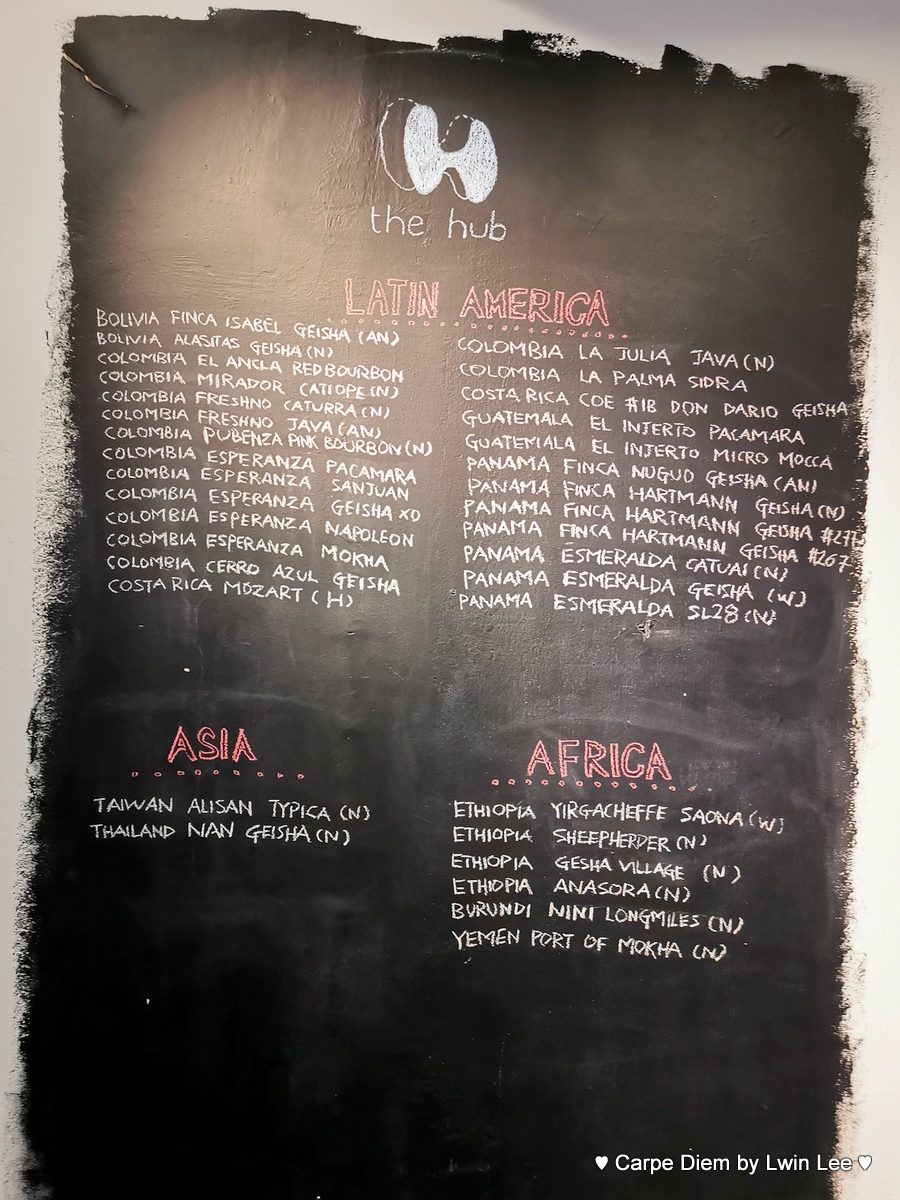 the hub
LATIN AMERICA
BOLIVIA FINCA ISABEL GEISHA (AN)
BOLIVIA ALASITAS GEISHA (N)
COLOMBIA EL ANGLA RED BOURBON
COLOMBIA MIRADOR CATIOPE (N)
COLOMBIA FRESHNO CATURRA (N)
COLOMBIA FRESHNO JAVA (AN)
COLOMBIA PUBENZA PINK BOURBON (N)
COLOMBIA ESPERANZA PACAMARA
COLOMBIA ESPERANZA SANJUAN
COLOMBIA ESPERANZA GEISHA XO
COLOMBIA ESPERANZA NAPOLEON
COLOMBIA ESPERANZA MOKHA
COLOMBIA CERRO AZUL GEISHA
COSTA RICA MOZART (H)
COLOMBIA LA JULIA JAVA (N)
COLOMBIA LA PALMA SIDRA
COSTA RICA COE #18 DON DARIO GEISHA
GUATEMALA EL INJERTO PACAMARA
GUATEMALA EL INJERTO MICRO MOCCA
PANAMA FINCA NUGUO GEISHA (AN)
PANAMA FINCA HARTMANN GEISHA (N)
PANAMA FINCA HARTMANN GEISHA
PANAMA FINCA HARTMANN GEISHA #267
PANAMA ESMERALDA CATUAI (N)
PANAMA ESMERALDA GEISHA (W)
PANAMA ESMERALDA SL28 (N)
ASIA
TAIWAN ALISAN TYPICA (N)
THAILAND NAN GEISHA (N)
AFRICA
ETHIOPIA YIRGACHEFFE SAONA (W)
ETHIOPIA SHEEPHERDER (N)
ETHIOPIA GESHA VILLAGE (N)
ETHIOPIA ANASORA (N)
BURUNDI NINI LONGMILES (N)
YEMEN PORT OF MOKHA (N)
♥ Carpe Diem by Lwin Lee ♥